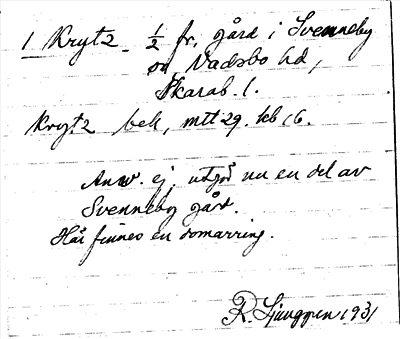 1 Kryt 2 1/2 fr. gård i Svenneby
sn Vadsbo hd,
Skarab. l.
Kryt 2 beh, mtt 29. feb 16.
Anv. ej, utgör nu en del av
Svenneby gård.
Här finnes en domarring.
R. Ljunggren 1931